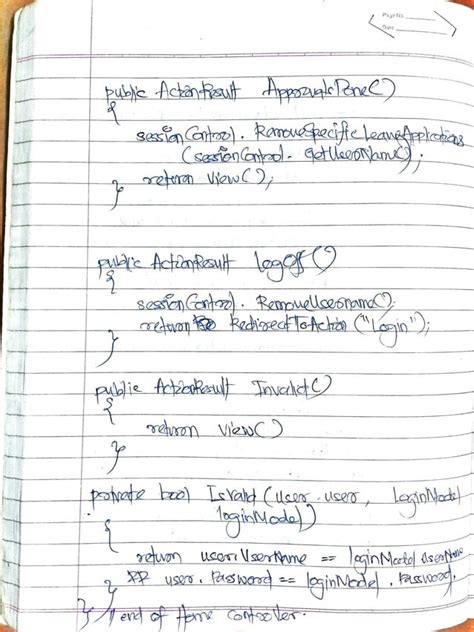 Page No.
Date
public ActionResult ApprovalsDone()
{
sessionControl. RemoveSpecificLeaveApplications
(sessionControl. GetUserName();
return View();
}
public ActionResult LogOff()
{
sessionControl. RemoveUsername();
return RedirectToAction ("Login");
}
public ActionResult Invalid()
{
return View()
}
private bool IsValid (User user, LoginModel
loginModel)
{
return user.UserName == loginModel UserName
&& user. Password == loginModel. Password.
}
} // end of Home controller.